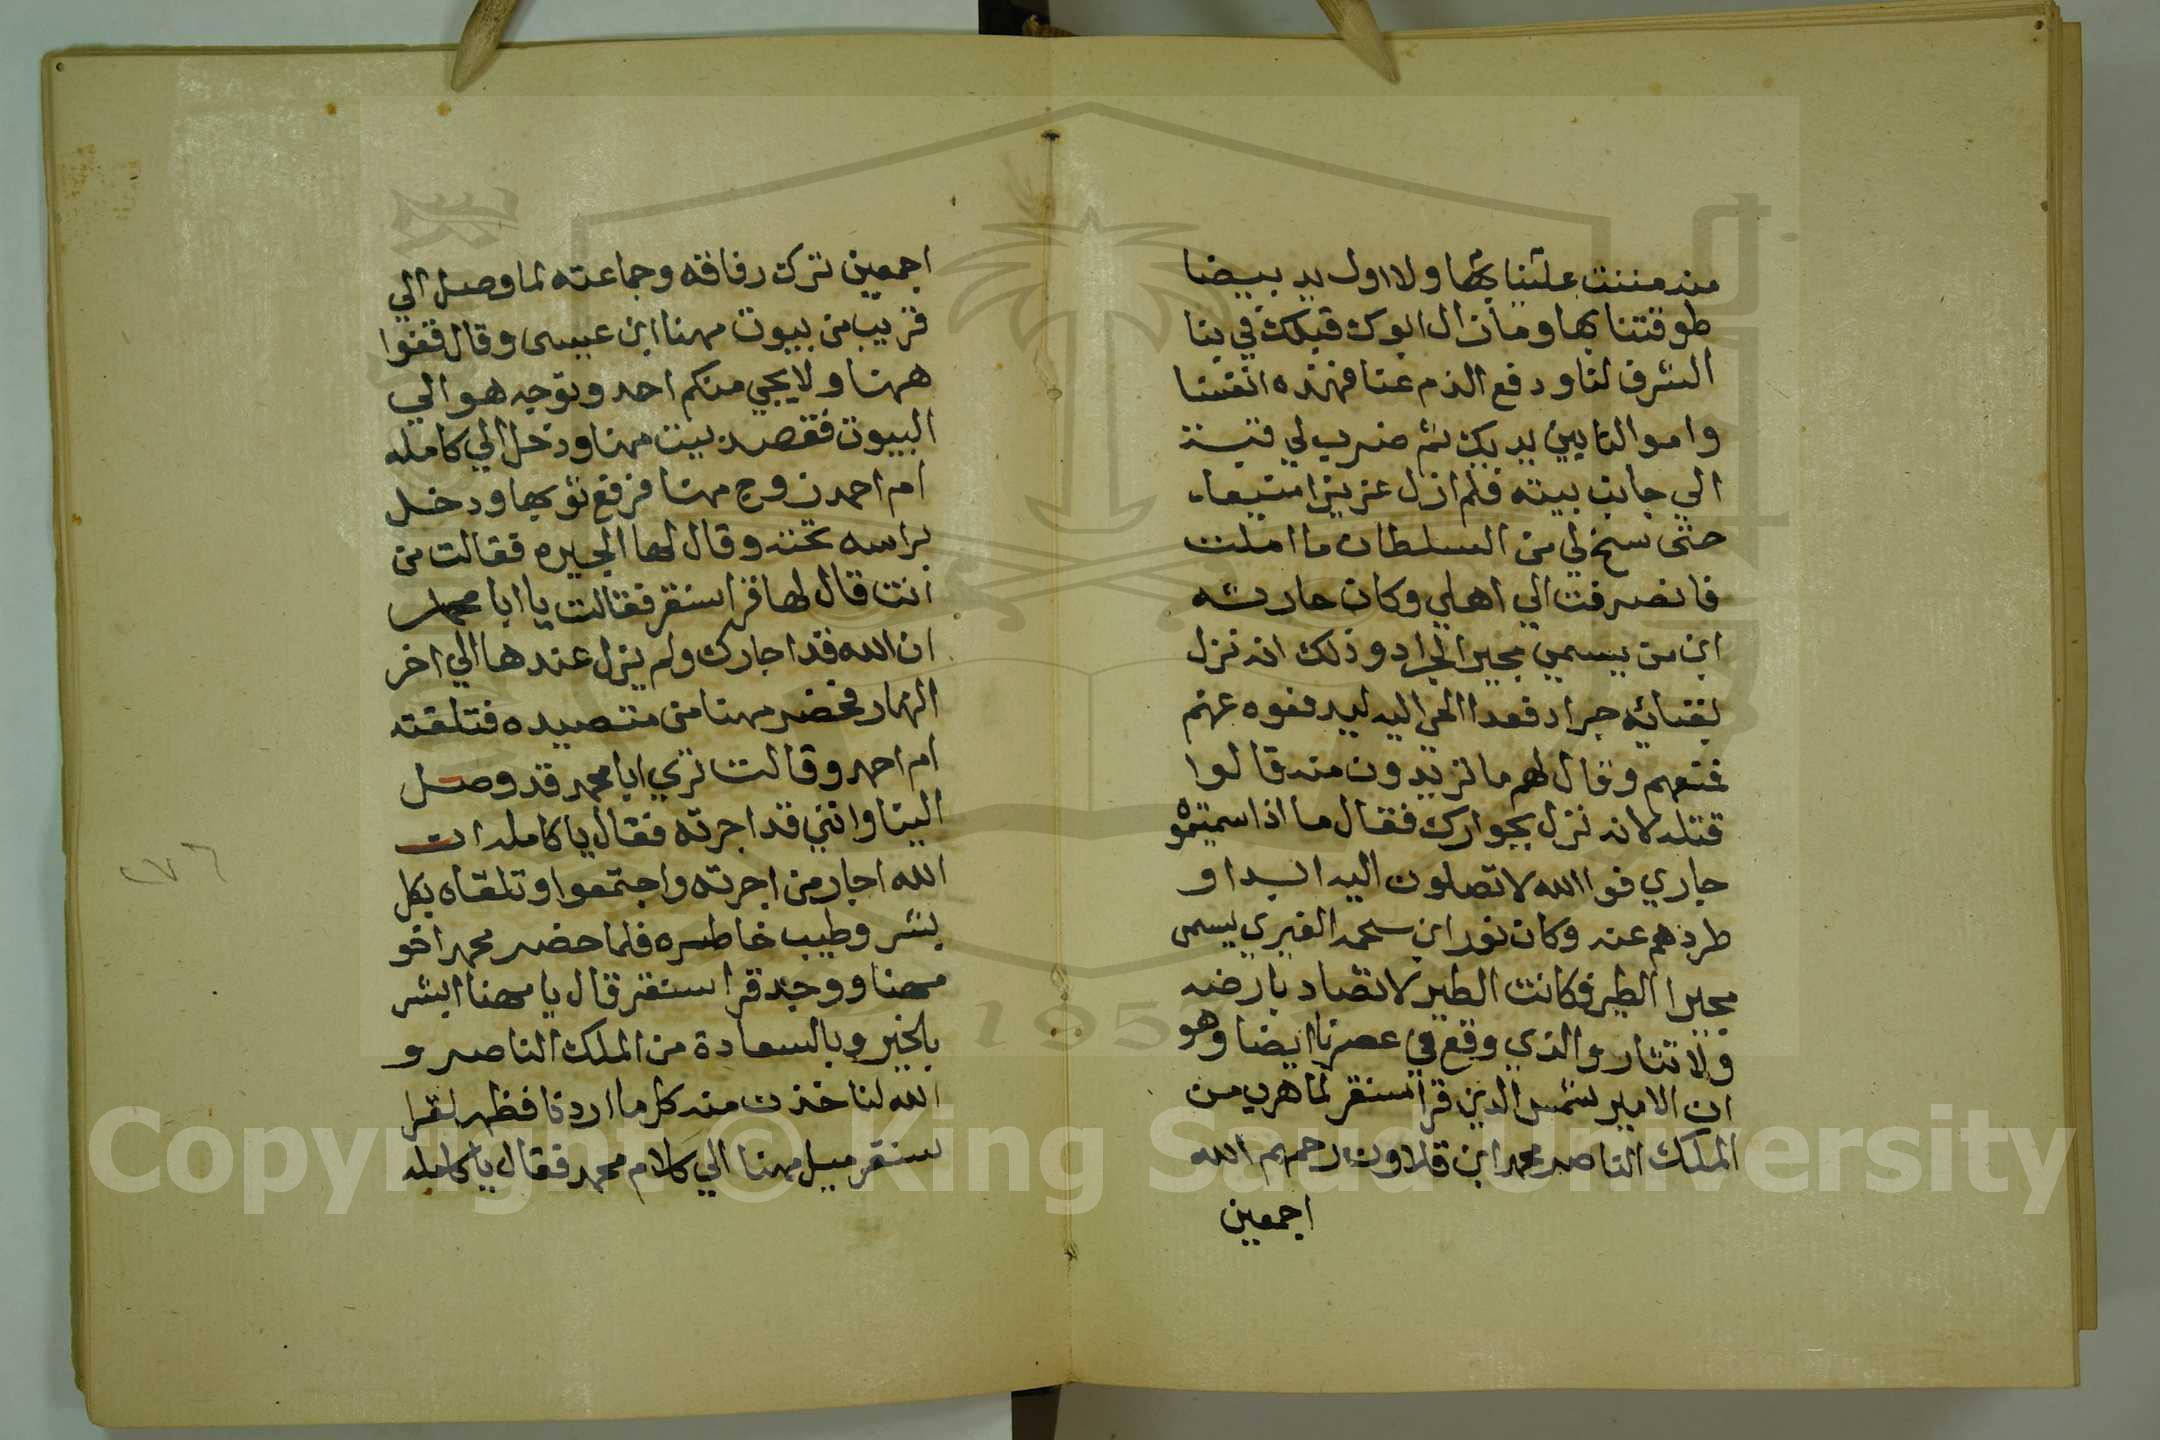 منه مننت علينا بها ولا اول يد بيضا
طوقتنا بها وما زال ابوك قبلك في بنا
الشرف لنا ودفع الذم عنا فهذه انفسنا
واموالنا بين يديك ثم ضرب لي قبة
الي جانب بيته فلم ازل عزيزا منيعا
حتى سنح لي من السلطان ما املت
فانصرفت الي اهلي وكان حارثه
ابن مر يسمي مجير الجراد وذلك انه نزل
بفنائه جراد فغدا الحي اليه ليدفعوه عنهم
فمنعهم وقال لهم ما تريدون منه قالوا
قتله لانه نزل بجوارك فقال ما اذا سميتموه
جاري فوالله لا تصلون اليه ابدا و
طردهم عنه وكان ثور ابن سحمه العنبري يسمى
مجيرا الطير فكانت الطير لا تصاد بارضه
ولا تثار والذي وقع في عصرنا ايضا وهو
ان الامير شمس الدين قراسنقر لما هرب من
الملك الناصر محمد ابن قلاون رحمهم الله
اجمعين
اجمعين ترك رفاقه وجماعته لما وصل الي
قريب من بيوت مهنا ابن عيسى وقال قفوا
ههنا ولا يجي منكم احد وتوجه هو الي
البيوت فقصد بيت مهنا ودخل الي كامله
ام احمد زوج مهنا فرفع ثوبها ودخل
براسه تحته وقال لها الجيره فقالت من
انت قال لها قراسنقر فقالت يا ابا محمد
ان الله قد اجارك ولم يزل عندها الي اخر
النهار فحضر مهنا من متصيده فتلقته
ام احمد وقالت تري ابا محمد قد وصل
الينا وانني قد اجرته فقال يا كامله ان
الله اجار من اجرته واجتمعوا وتلقاه بكل
بشر وطيب خاطره فلما حضر محمد اخو
مهنا ووجد قراسنقر قال يا مهنا ابشر
بالخير وبالسعادة من الملك الناصر و
الله لناخذن منه كل ما اردنا فظهر لقرا
سنقر ميل مهنا الي كلام محمد فقال يا كامله
٢٧٦
Copyright © King Saud University
1957